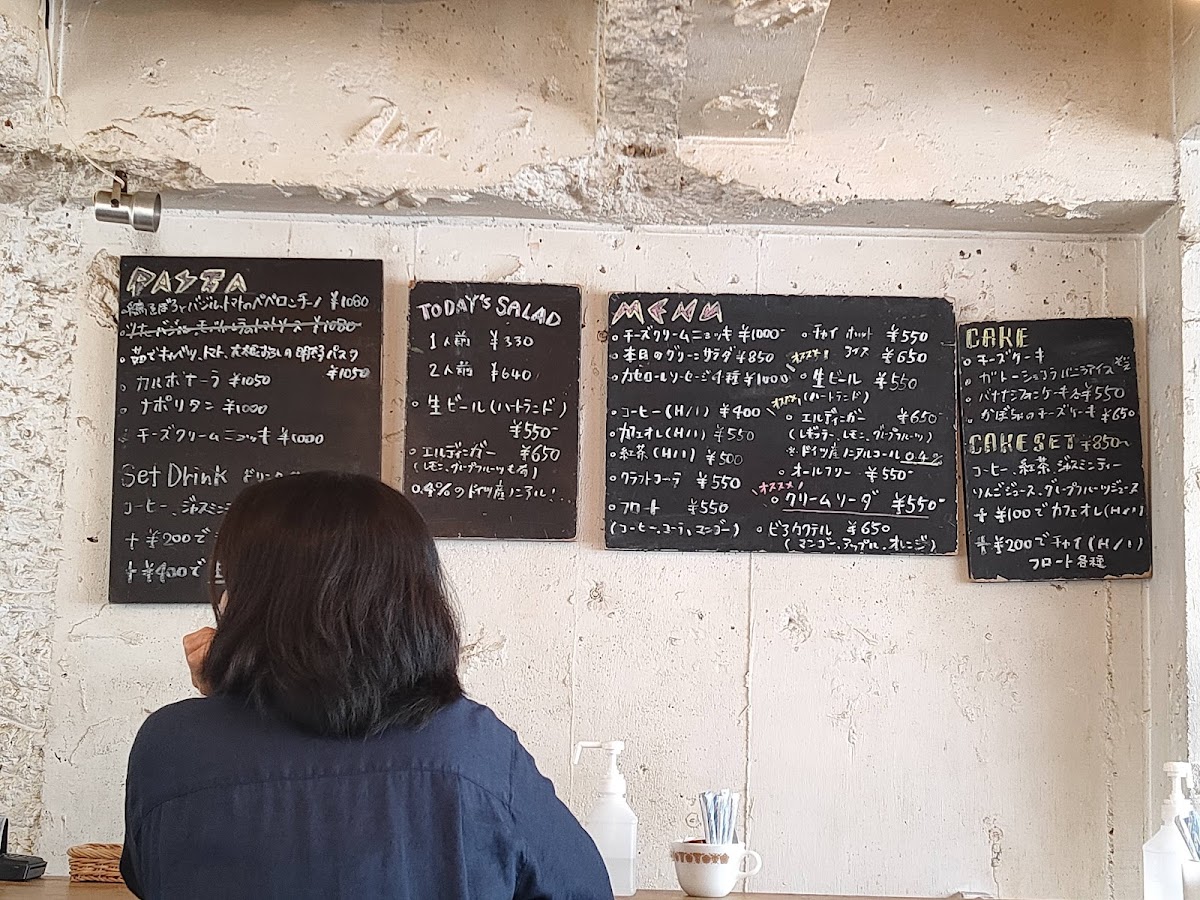 PASTA
鶏そぼろとバジルトマトのペペロンチーノ ¥1080
トマトソース ¥1080
茹でキャベツ、トマト、大根おろしの明太子パスタ
¥1050
カルボナーラ ¥1050
ナポリタン ¥1000
チーズクリームニョッキ ¥1000
Set Drink
コーヒー、ジャスミン
+¥200で
+¥400で
TODAY'S SALAD
1人前 ¥330
2人前 ¥640
生ビール(ハートランド)
¥550-
エルディンガー ¥650
(レモン、グレープフルーツも有)
0.4%のドイツ産ノンアル!
MENU
チーズクリームニョッキ ¥1000-
本日のグリーンサラダ ¥850
カセロールソーセージ4種 ¥1000
コーヒー(H/I) ¥400
カフェオレ(H/I) ¥550
紅茶(H/I) ¥500
クラフトコーラ ¥550
フロート ¥550
(コーヒー、コーラ、マンゴー)
チャイ ホット ¥550
アイス ¥650
オススメ!
生ビール ¥550
(ハートランド)
オススメ!
エルディンガー ¥650
(レギュラー、レモン、グレープフルーツ)
※ドイツ産ノンアルコール 0.4%
オールフリー ¥550-
オススメ!
クリームソーダ ¥550-
ビアカクテル ¥650
(マンゴー、アップル、オレンジ)
CAKE
チーズケーキ
ガトーショコラ バニラアイス
バナナシフォンケーキ 各¥550
かぼちゃのチーズケーキ ¥650
CAKE SET ¥850~
コーヒー、紅茶、ジャスミンティー
りんごジュース、グレープフルーツジュース
+¥100でカフェオレ(H/I)
+¥200でチャイ(H/I)
フロート各種